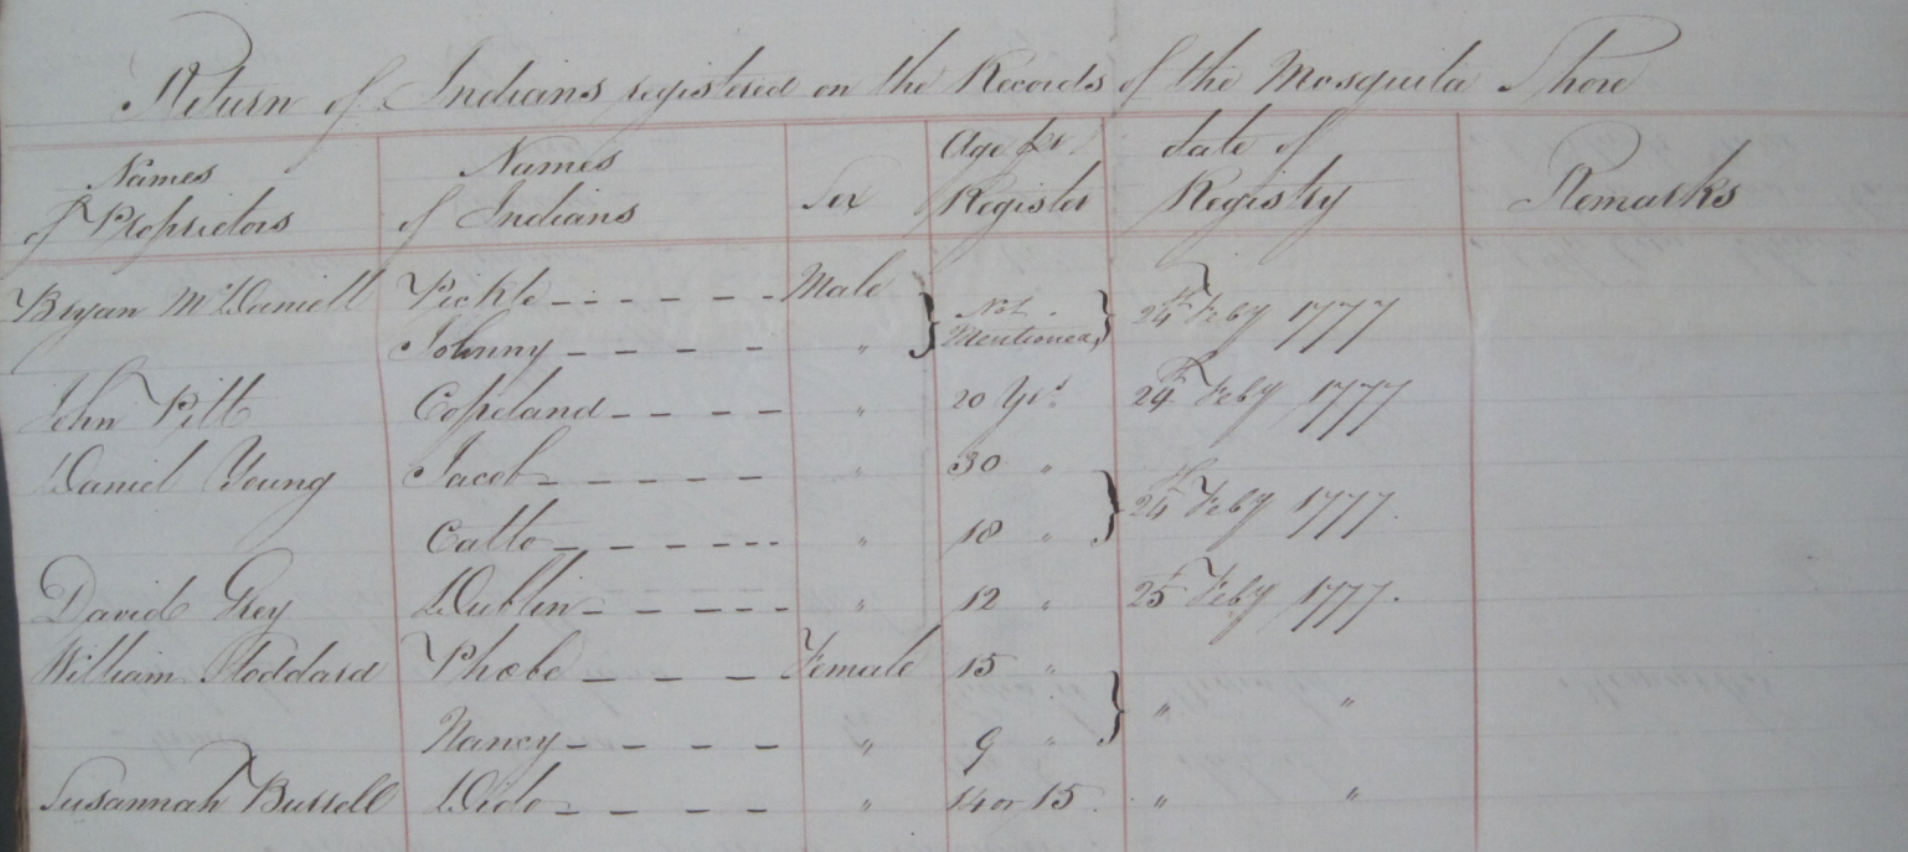 Return of Indians registered on the Records of the Mosquito Shore
Names of Proprietors Names of Indians Sex Age pr. Register date of Registry Remarks
Bryan McDaniell Pickle Male Not Mentioned 24th Feby 1777
Johnny "
John Pitt Copeland " 20 Yrs. 24th Feby 1777
Daniel Young Jacob " 30 " 24th Feby 1777.
Catto " 18 "
David Grey Dublin " 12 " 25th Feby 1777.
William Stoddard Phobe Female 15 " " "
Nancy " 9 "
Susannah Burrell Dido " 14 or 15. " "